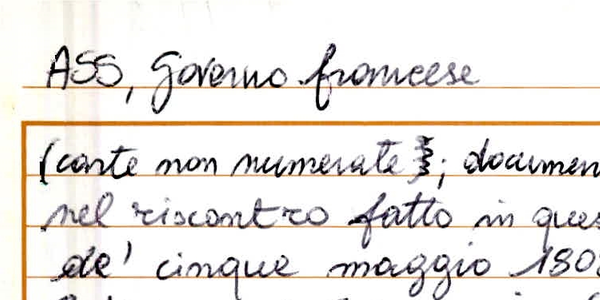 ASS, Governo francese
(carte non numerate; documen
nel riscontro fatto in ques
de' cinque maggio 180